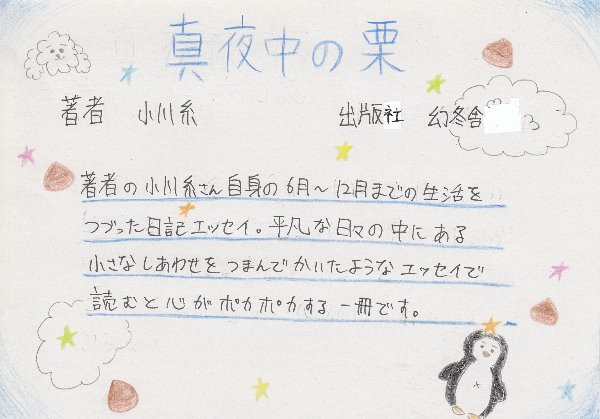 真夜中の栗
著者 小川糸 出版社 幻冬舎
著者の小川糸さん自身の6月〜12月までの生活を
つづった日記エッセイ。平凡な日々の中にある
小さなしあわせをつまんでかいたようなエッセイで
読むと心がポカポカする一冊です。